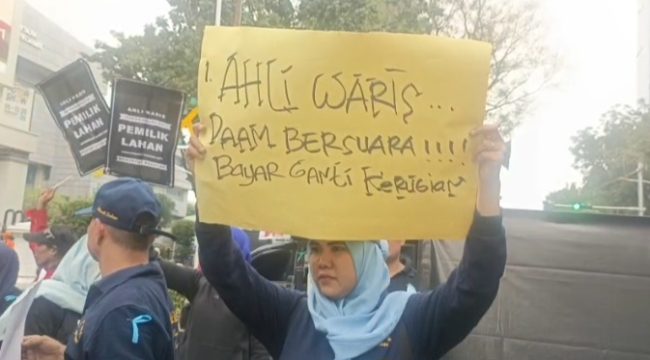 1. AHLI WARIS...
DAAM BERSUARA!!!!
BAYAR GANTI KERUGIAN
AHLI WARIS
PEMILIK
LAHAN
AHLI WARIS
PEMILIK
LAHAN